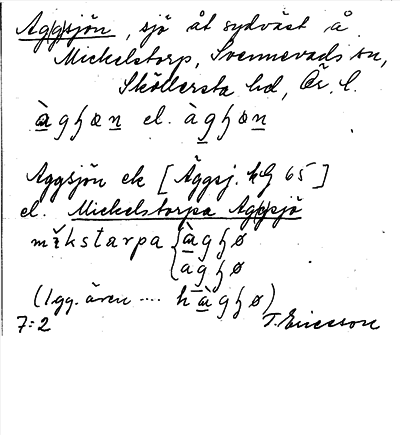 Aggsjön, sjö åt sydväst å
Mickelstorp, Svennevads sn,
Sköllersta hd, Ör. l.
àgɧøn el. àgɧøn
Aggsjön ek [Äggsj. kG 65]
el. Mickelstorpa Aggsjö
mikstarpa { àgɧø
{ agɧø
(lgg. ären .... h àgɧø)
7:2 T. Ericsson